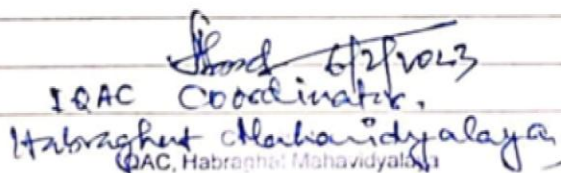 6/2/2023
IQAC Coordinator,
Habraghat Mahavidyalaya,
IQAC, Habraghat Mahavidyalaya